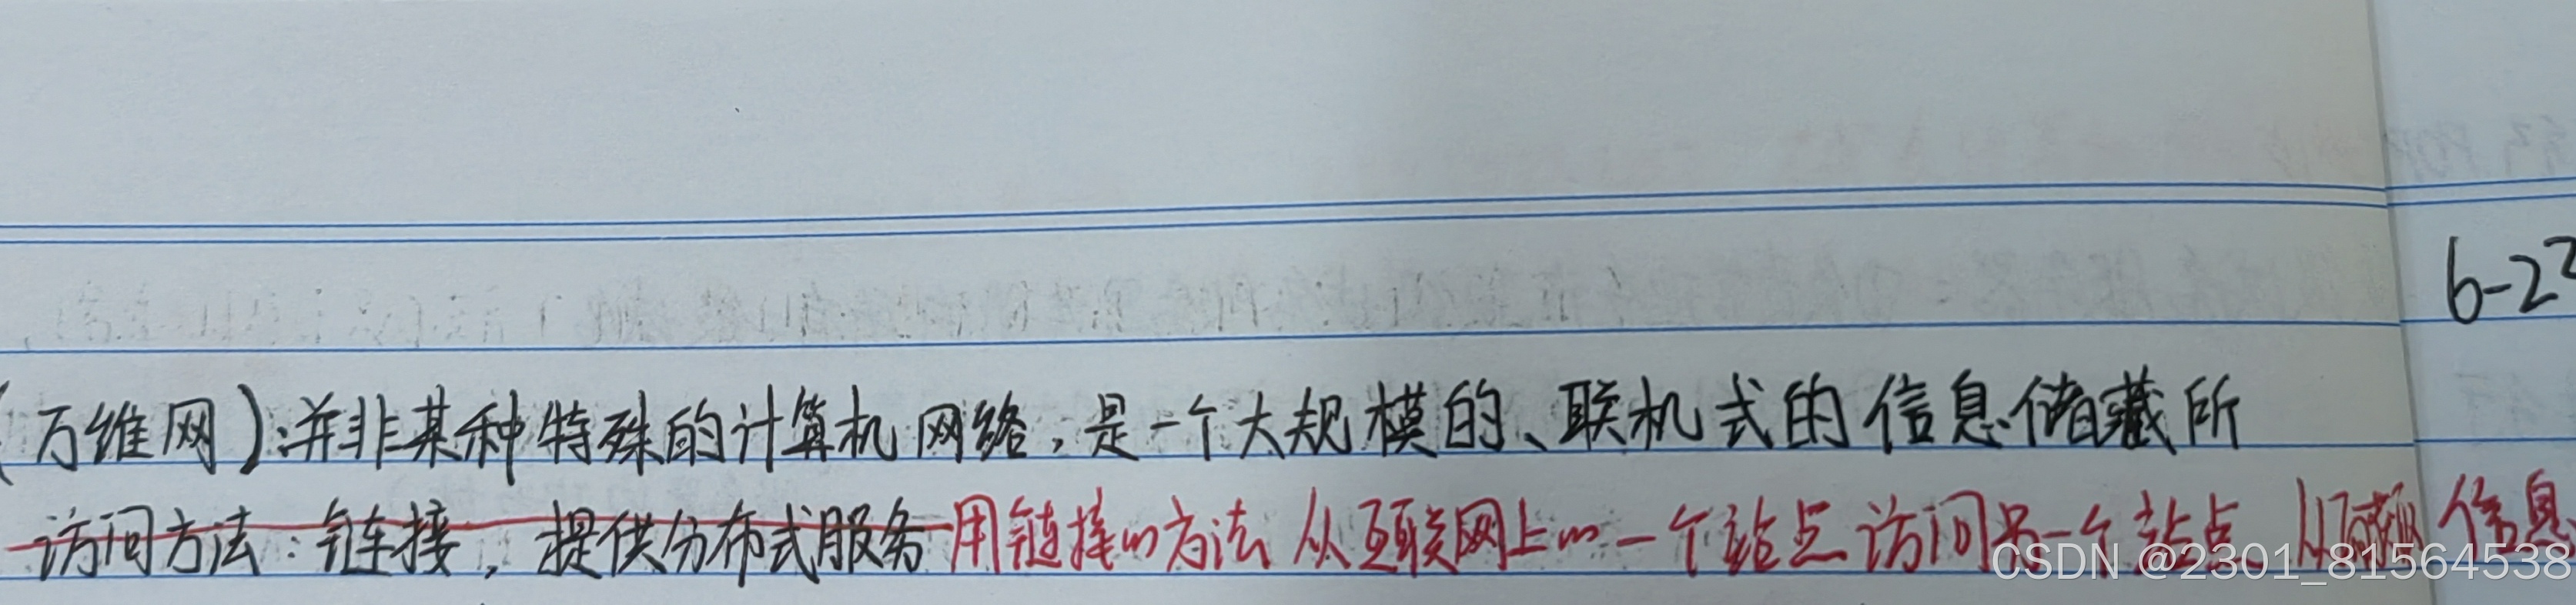 6-2
(万维网):并非某种特殊的计算机网络,是一个大规模的、联机式的信息储藏所
访问方法:链接,提供分布式服务 用链接的方法 从互联网上的一个站点访问另一个站点 从而获取信息
CSDN @2301_81564538